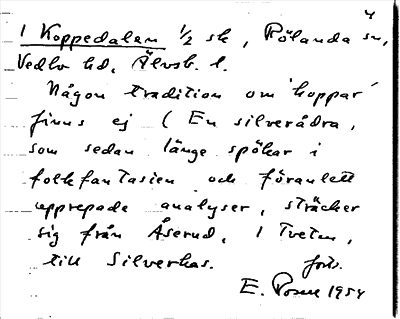 4
1 Koppedalen 1/2 sk, Rölanda sn,
Vedbo hd, Älvsb. l.
Någon tradition om 'koppar'
finns ej ( En silverådra,
som sedan länge spökar i
folkfantasien och föranlett
upprepade analyser, sträcker
sig från Åserud, 1 Tveten,
till Silverhas. forts.
E. 1954